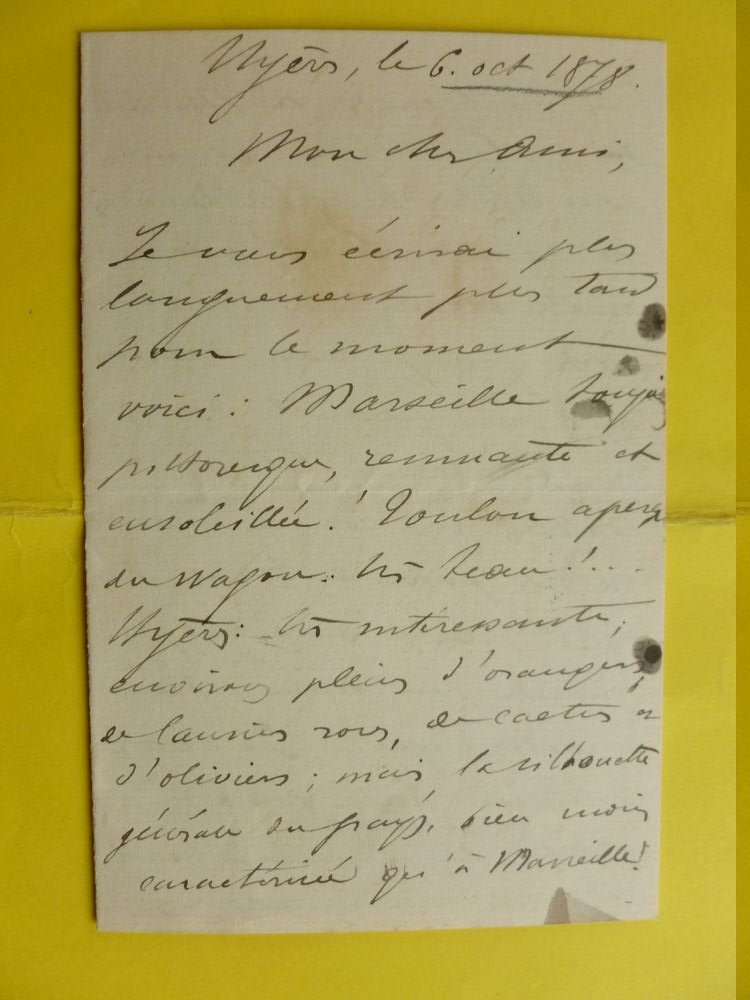 Hyères, le 6. oct 1878.
Mon cher Ami,
Je vous écrirai plus
longuement plus tard
pour le moment
voici : Marseille toujo
pittoresque, remuante et
ensoleillée ! Toulon aperç
du wagon : très beau !...
Hyères : très intéressante ;
environs pleins d'orangers,
de lauriers roses, de cactus et
d'oliviers ; mais la silhouette
générale du pays, bien moins
caractérisée qu'à Marseille !